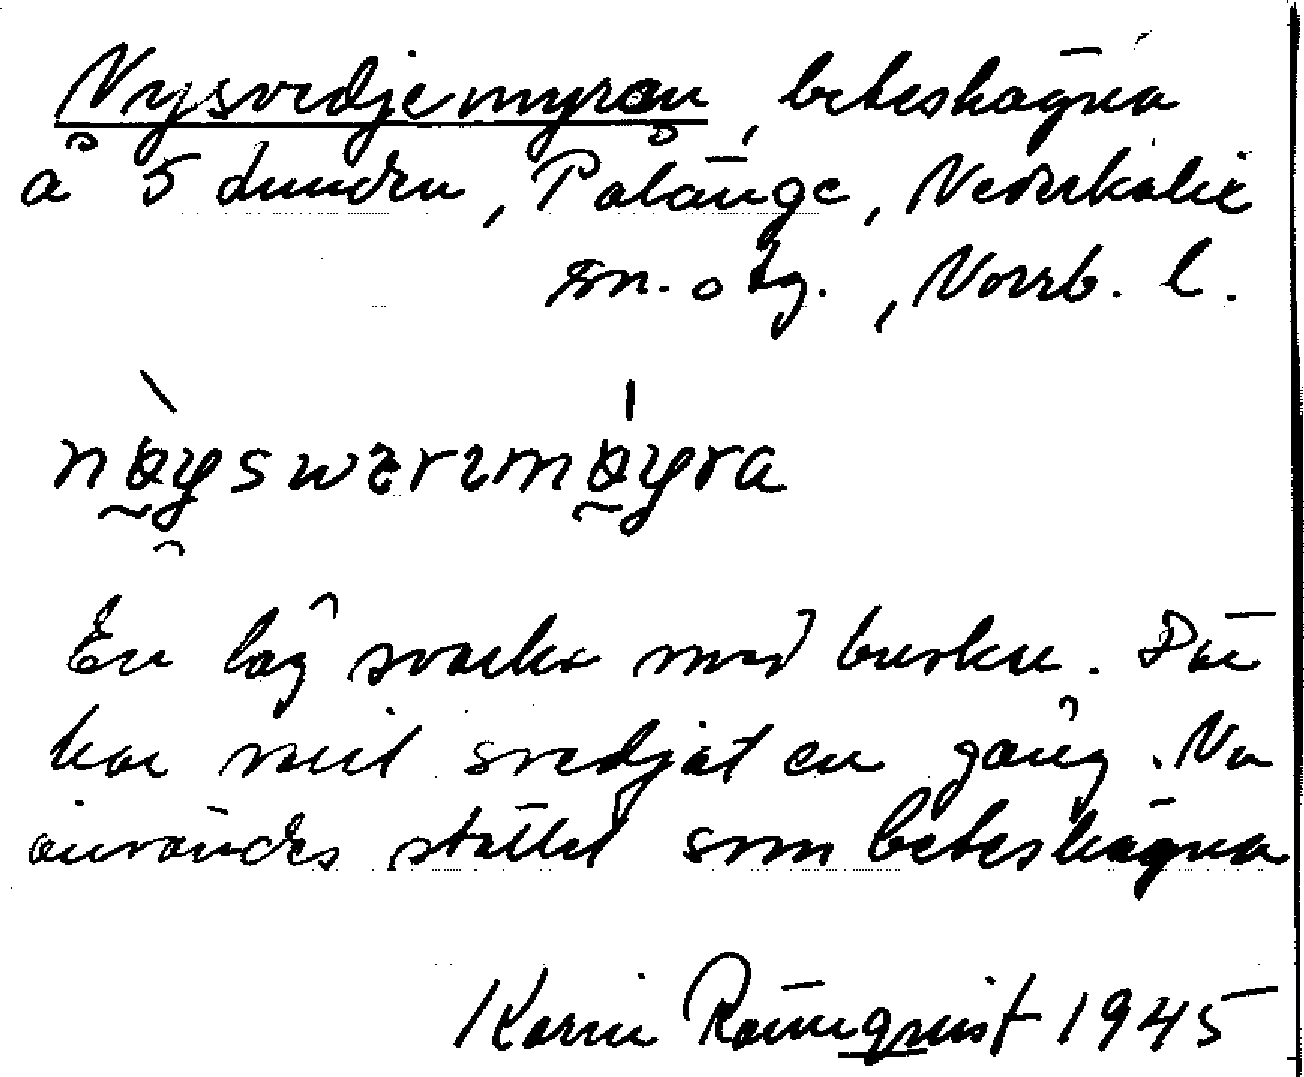 Nysvedjemyran, beteshägna
å 5 tunnl., Pålänge, Nederkalix
sn. o tg., Norrb. l.
En låg svacka med buskar. Där
har varit svedjat en gång. Nu
användes stället som beteshägna
Karin Rännquist 1945